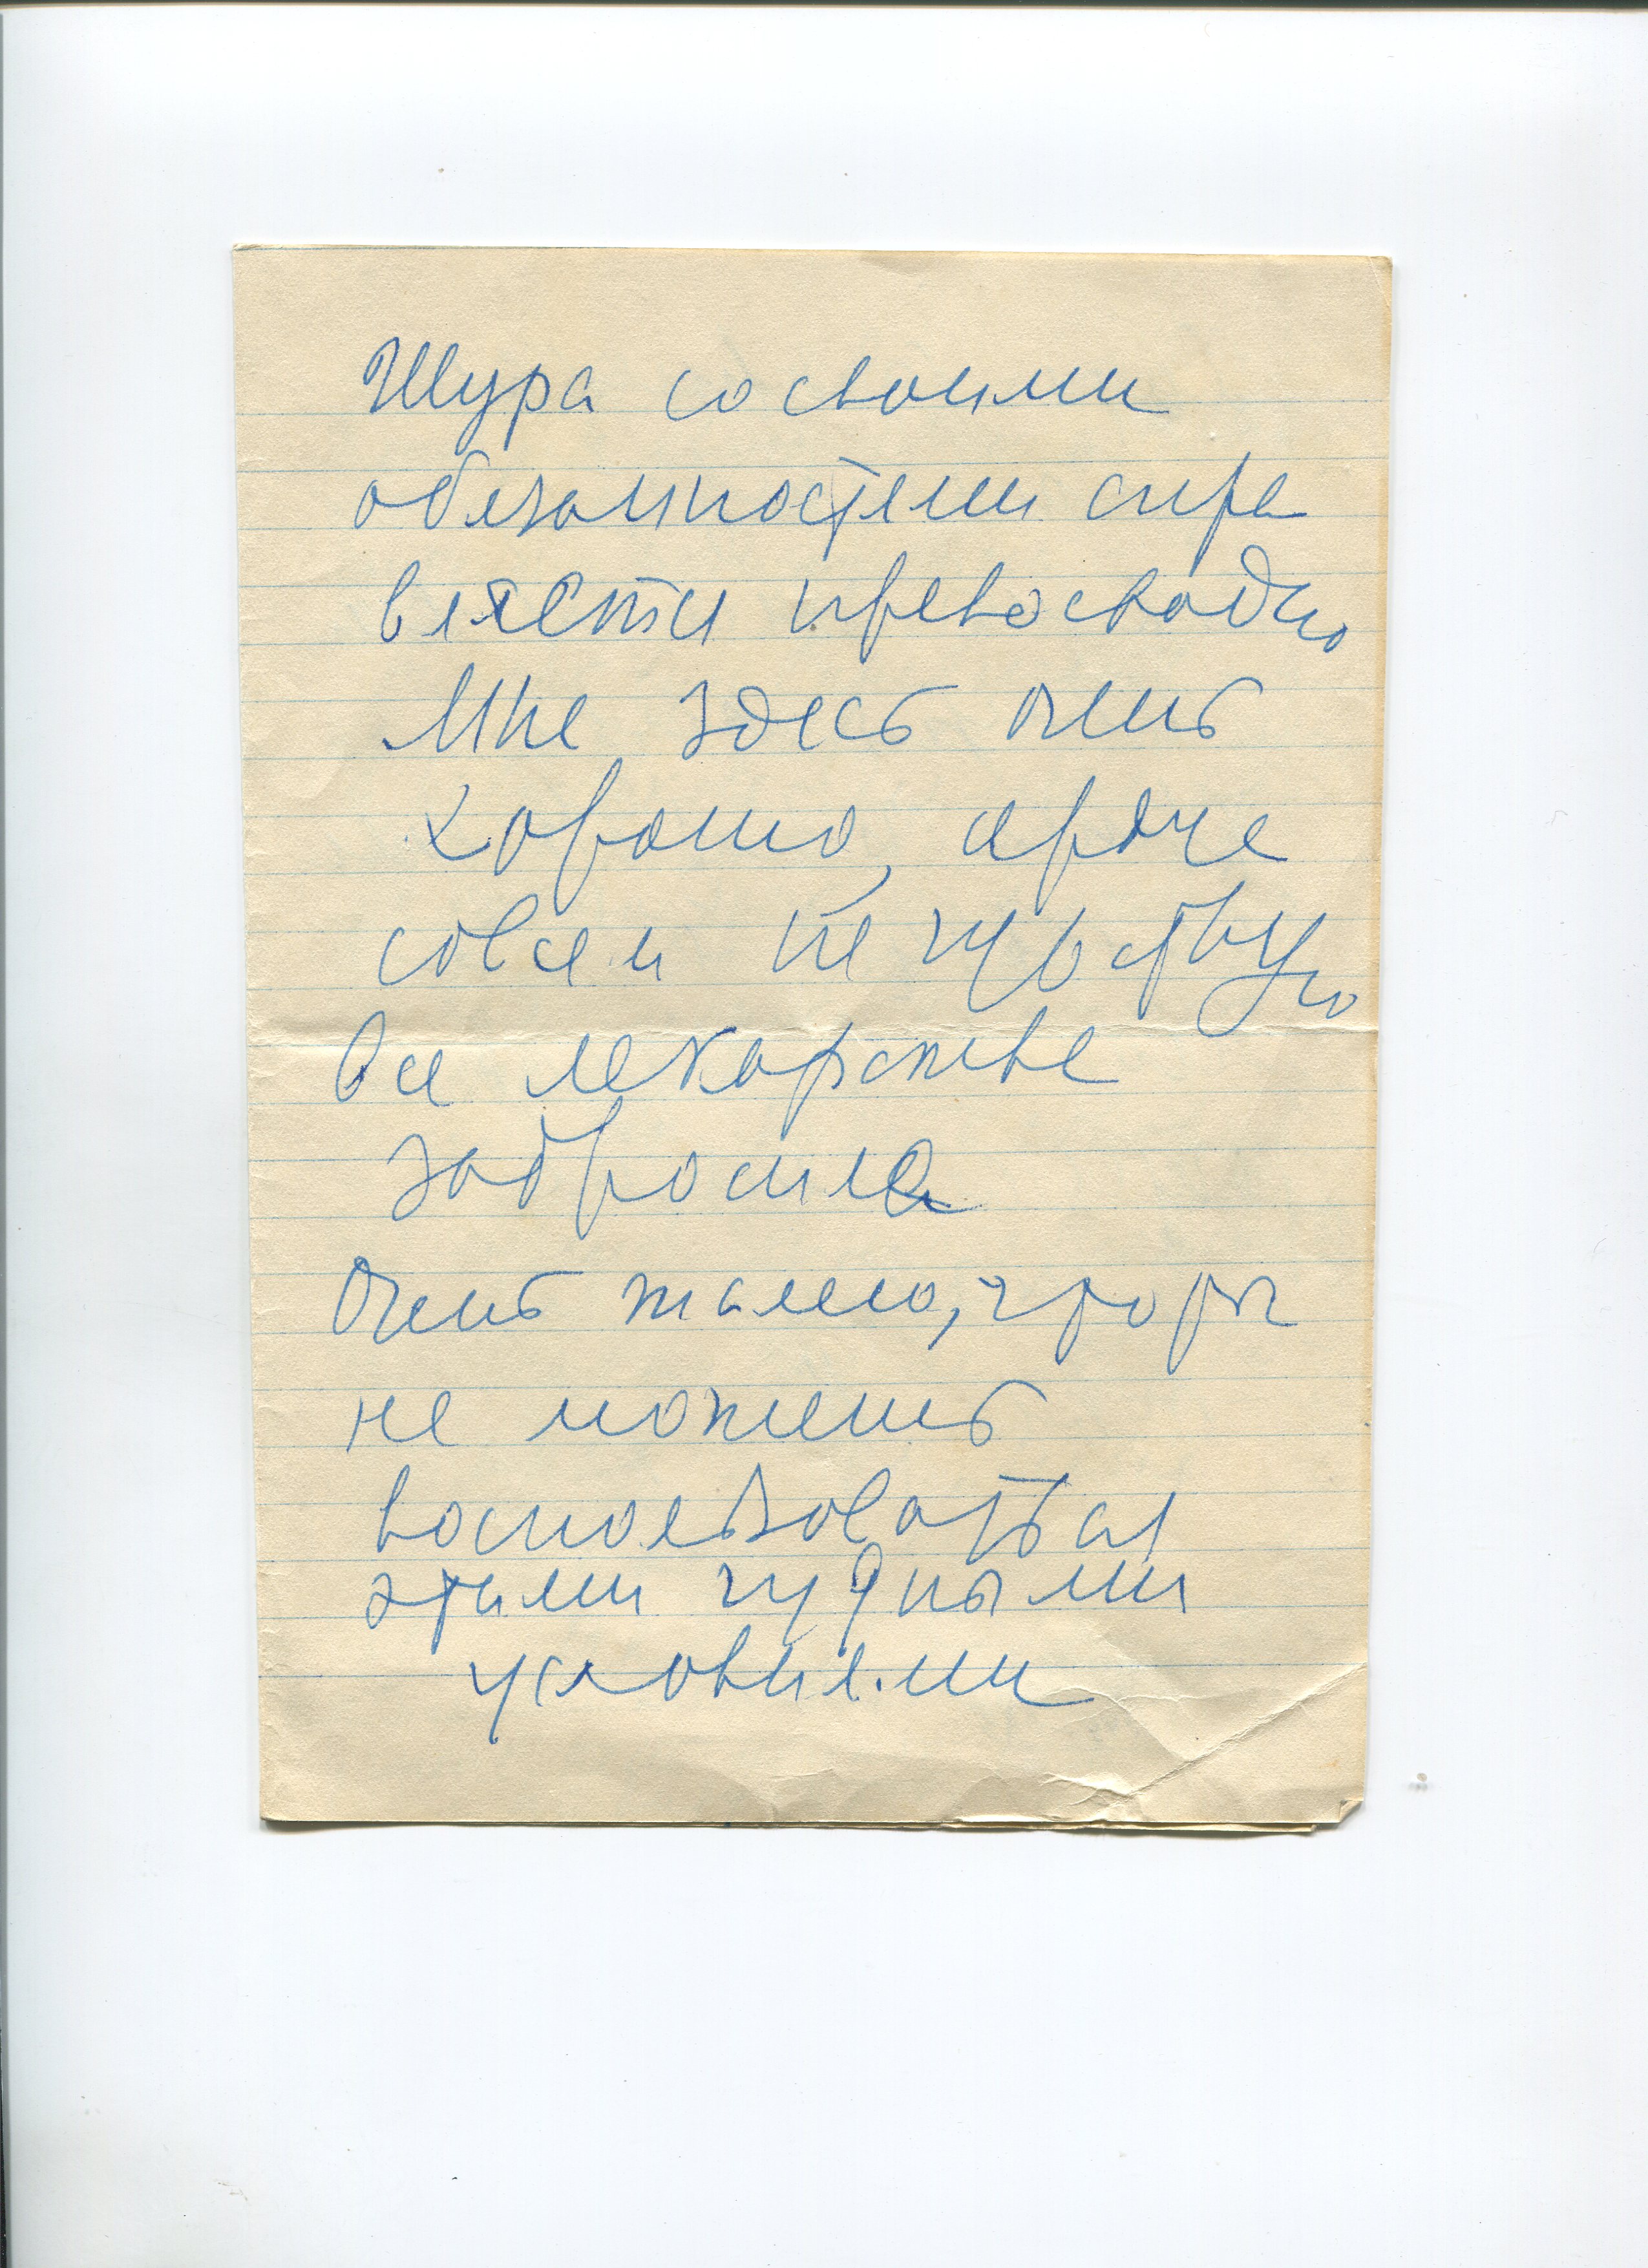 Шура со своими
обезаностями спра
вляется превосходно
Мне здесь очень
хорошо, сердце
совсем не чувствую
Все лекарства
забросила
Очень жалею, что ты
не можешь
воспользоваться
этими чудными
условиями